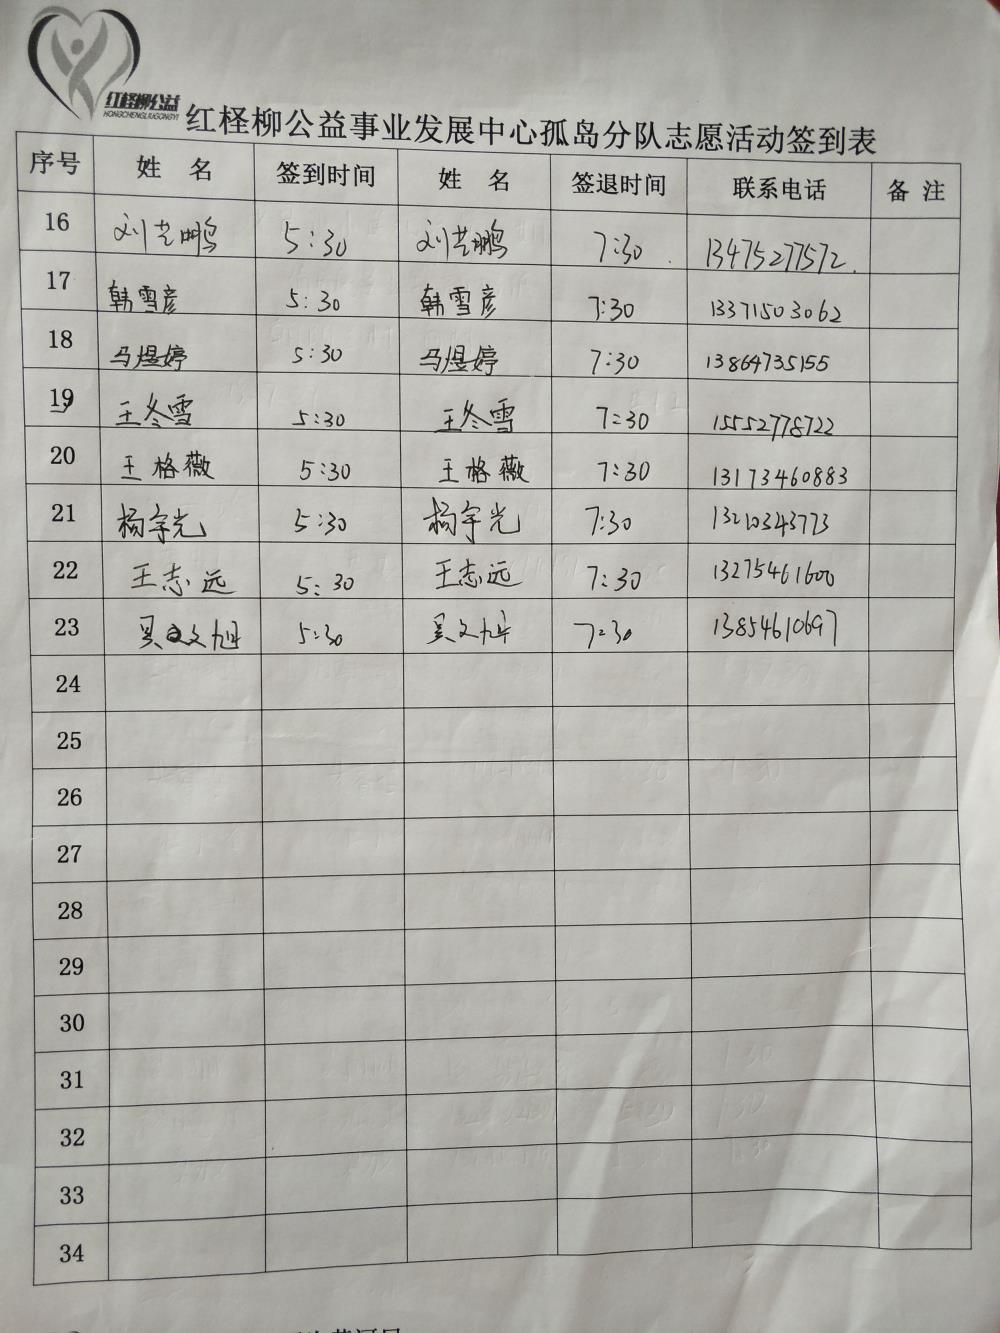 红柽柳公益
HONGCHENGLIUGONGYI
红柽柳公益事业发展中心孤岛分队志愿活动签到表
序号 姓 名 签到时间 姓 名 签退时间 联系电话 备 注
16 刘艺鹏 5:30 刘艺鹏 7:30 13475277572
17 韩雪彦 5:30 韩雪彦 7:30 13371503062
18 马煜婷 5:30 马煜婷 7:30 13864735155
19 王冬雪 5:30 王冬雪 7:30 15552778722
20 王格薇 5:30 王格薇 7:30 13173460883
21 杨宇光 5:30 杨宇光 7:30 13210343773
22 王志远 5:30 王志远 7:30 13275461600
23 吴文旭 5:30 吴文旭 7:30 13854610697
24
25
26
27
28
29
30
31
32
33
34